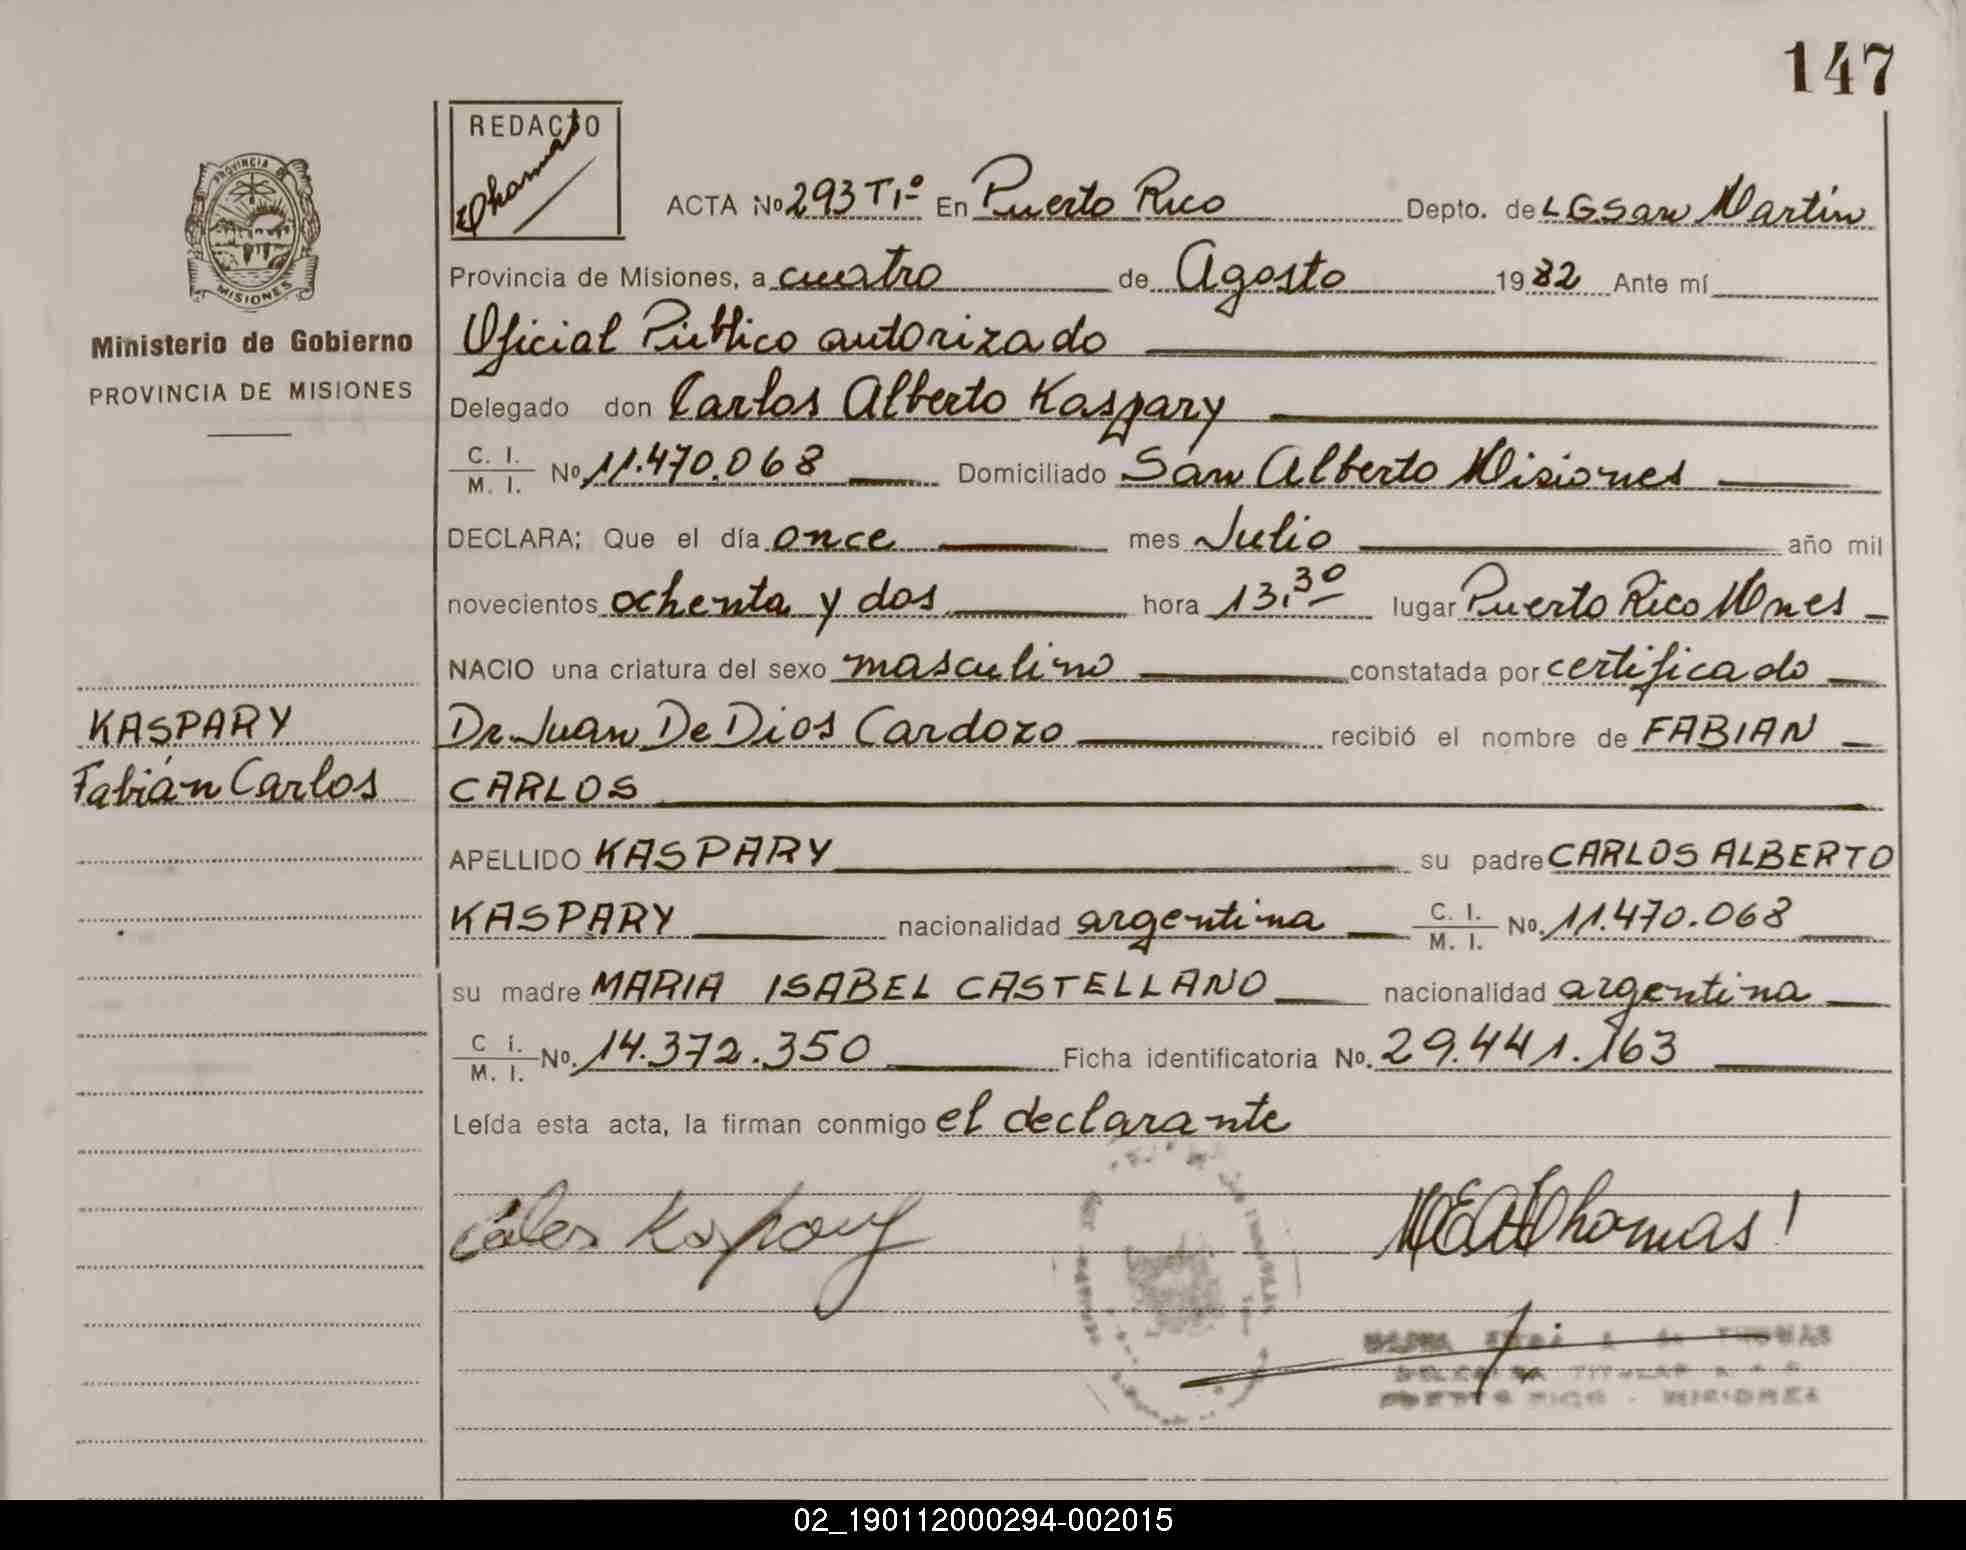 147
REDACTO
Thomas
PROVINCIA DE
MISIONES
Ministerio de Gobierno
PROVINCIA DE MISIONES
ACTA No 293 T1º En Puerto Rico Depto. de L G San Martín
Provincia de Misiones, a cuatro de Agosto 1982 Ante mí
Oficial Público autorizado
Delegado don Carlos Alberto Kaspary
C. I. / M. I. No 11.470.068 Domiciliado San Alberto Misiones
DECLARA; Que el día once mes Julio año mil
novecientos ochenta y dos hora 13.30 lugar Puerto Rico Mnes
NACIO una criatura del sexo masculino constatada por certificado
Dr. Juan De Dios Cardozo recibió el nombre de FABIAN
CARLOS
KASPARY
Fabián Carlos
APELLIDO KASPARY su padre CARLOS ALBERTO
KASPARY nacionalidad argentina C. I. / M. I. No. 11.470.068
su madre MARIA ISABEL CASTELLANO nacionalidad argentina
C I. / M. I. No. 14.372.350 Ficha identificatoria No. 29.441.163
Leída esta acta, la firman conmigo el declarante
Kaspary Thomas
THOMAS
TITULAR
PUERTO RICO - MISIONES
02_190112000294-002015